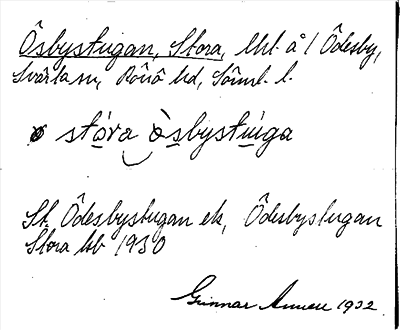 Ösbystugan, Stora, lht å 1 Ödesby,
Svärta sn, Rönö hd, Söml. l.
stóra ò̀sbystuiga
St. Ödesbystugan ek, Ödesbystugan
Stora jb 1930
Gunnar 1932